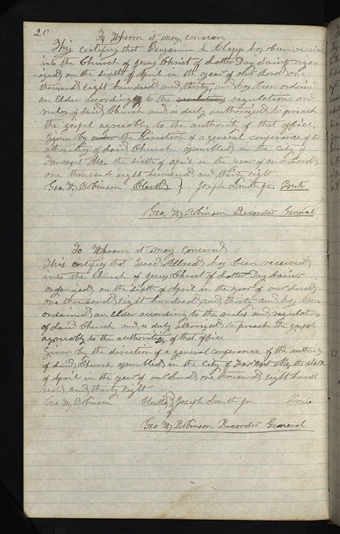 20
To Whom it may concern
This certify that Benjamin L Clapp has been received
into the Church of Jesus Christ of Latter Day Saints organ
ized on the sixth of April in the year of our Lord one
thousand eight hundred and thirty, and has been ordained
an Elder according to the regulations and
rules of said Church and is duly authorized to preach
the gospel agreeably to the authority of that office.
Given by the direction of a general conference of the
authority of said Church assembled in the City of
Far West Mo the sixth of April in the year of our Lord
one thousand eight hundred and thirty eight
Geo. W. Robinson Clerk } Joseph Smith jr
Geo. W. Robinson Recorder General
To Whom it may Concern
This certify that Isaac Allred has been received
into the Church of Jesus Christ of Latter Day Saints
organized on the sixth of April in the year of our Lord
one thousand eight hundred and thirty and has been
ordained an elder according to the rules and regulations
of said Church and is duly athorized to preach the gospel
agreeably to the authority of that office
Given by the direction of a general conference of the authority
of said Church assembled in the City of Far West Mo the sixth
of April in the year of our Lord one thousand eight hund
red and thirty eight
Geo W Robinson Clerk } Joseph Smith jr
Geo W Robinson Recorder General